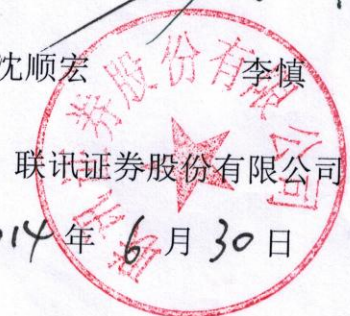 沈顺宏 李慎
联讯证券股份有限公司
2014年6月30日
联讯证券股份有限公司